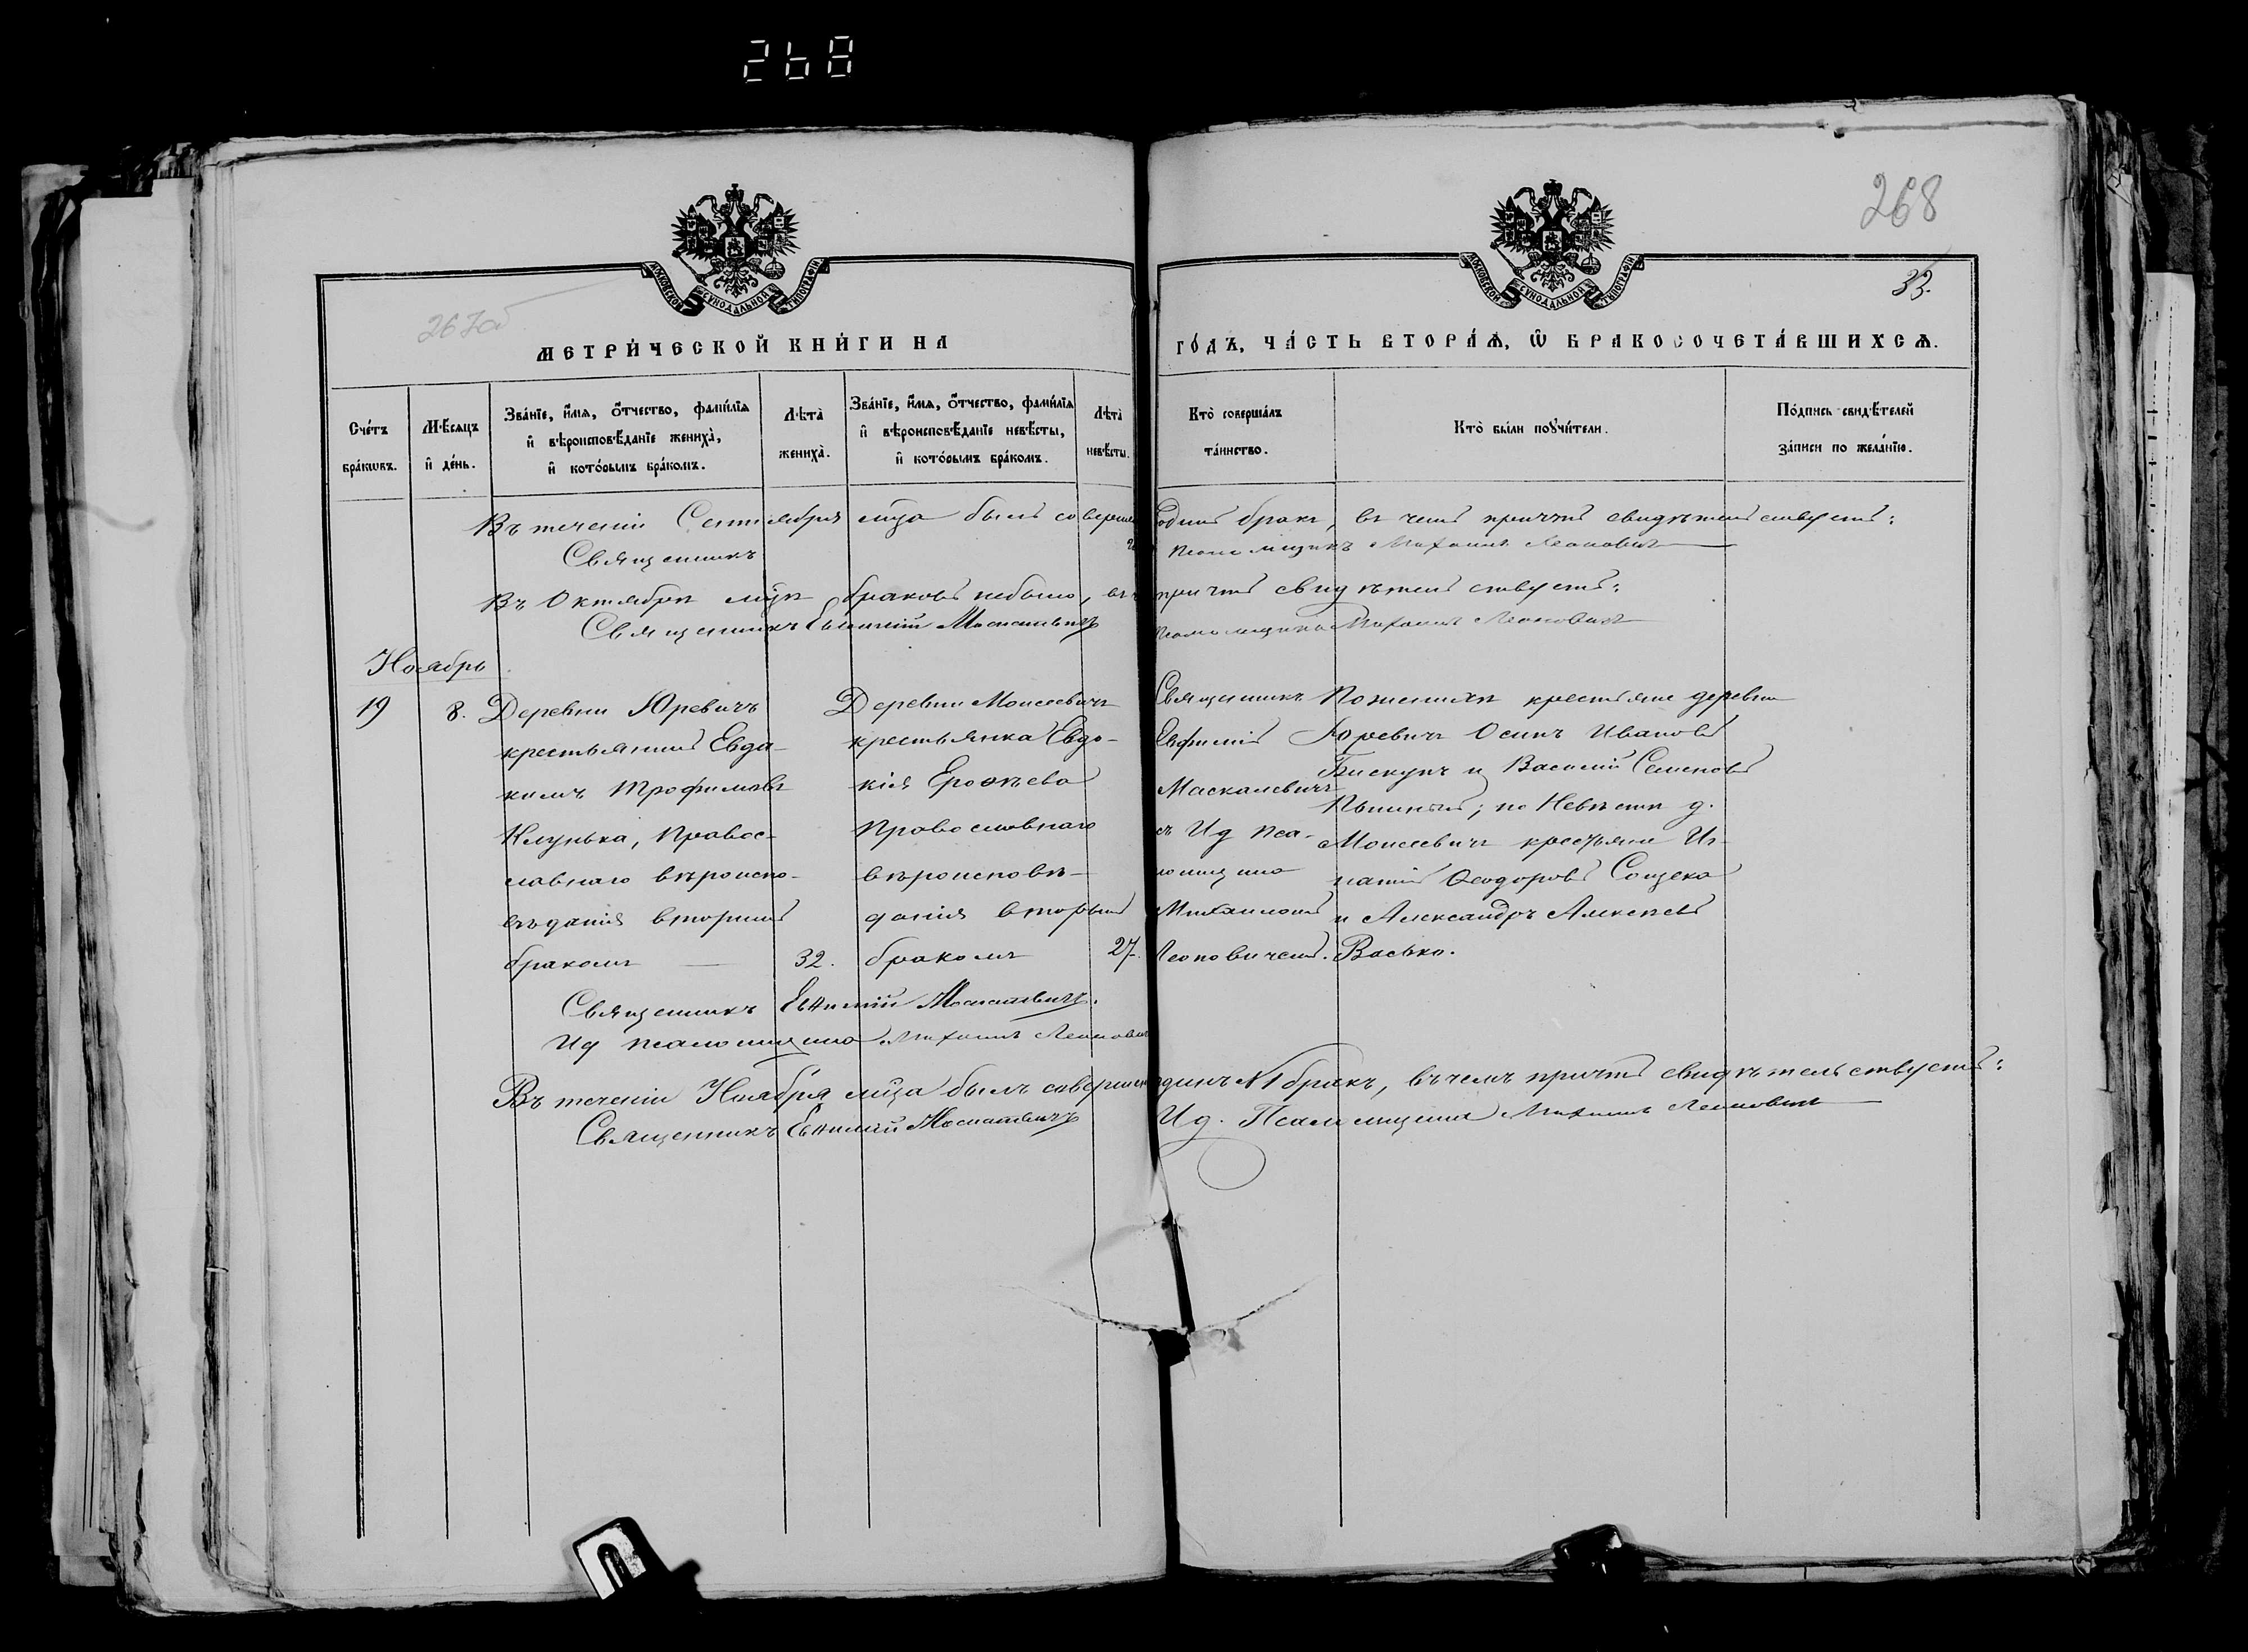 268
268
33.
267об
МОСКОВСКОЙ СУНОДАЛЬНОЙ ТИПОГРАФІИ
МОСКОВСКОЙ СУНОДАЛЬНОЙ ТИПОГРАФІИ
МЕТРИ́ЧЕСКОЙ КНИ́ГИ НА
ГО́ДЪ, ЧА́СТЬ ВТОРА́Ѧ, Ѡ БРАКОСОЧЕТА́ВШИХСѦ.
Сче́тъ
бра́кѡвъ.
Мѣ́сяцъ
и де́нь.
Зва́нїе, и́мѧ, о́тчество, фами́лїѧ
и вѣроисповѣ́данїе жениха̀,
и кото́рымъ бра́комъ.
Лѣта̀
жениха̀.
Зва́нїе, и́мѧ, о́тчество, фами́лїѧ
и вѣроисповѣ́данїе невѣ́сты,
и кото́рымъ бра́комъ.
Лѣта̀
невѣ́сты.
Кто̀ соверша́лъ
та́инство.
Кто̀ бы́ли поꙋчи́тели.
По́дпись свидѣ́телей
за́писи по жела́нїю.
Въ теченіи Сентября мца былъ соверше одинъ бракъ, въ чемъ причтъ свидѣтельствуетъ:
Священникъ
псаломщикъ Михаилъ Леоновичъ
Въ Октябрѣ мцѣ браковъ небыло, въ причтъ свидѣтельствуетъ:
Священникъ Евфимій Маскалевичъ
псаломщика Михаилъ Леоновичъ
Ноябрь
19
8.
Деревни Юревичъ
крестьянинъ Евда-
кимъ Трофимовъ
Клунька, Правос-
лавнаго вѣроиспо-
вѣданія вторымъ
бракомъ
32.
Деревни Моисеевичъ
крестьянка Евдо-
кія Ерофѣева
Православнаго
вѣроисповѣ-
данія вторымъ
бракомъ
27.
Священникъ
Евфимій
Маскалевичъ
съ Ид пса-
ломщика
Михаиломъ
Леоновичемъ.
По женихѣ крестьяне деревни
Юревичъ Осипъ Ивановъ
Бискупъ и Василій Семеновъ
по Невѣстѣ д.
Моисеевичъ крестьяне Иг-
натій Ѳеодоровъ Сощека
и Александръ Алексѣевъ
Васько.
Священникъ Евѳимій Маскалевичъ.
Ид псаломщика Михаилъ Леонович
Въ теченіи Ноября мца былъ соверше одинъ №1 бракъ, въ чемъ причтъ свидѣтельствуетъ:
Священникъ Евѳимій Маскалевичъ
Ид. Псаломщика Михаилъ Леоновичъ